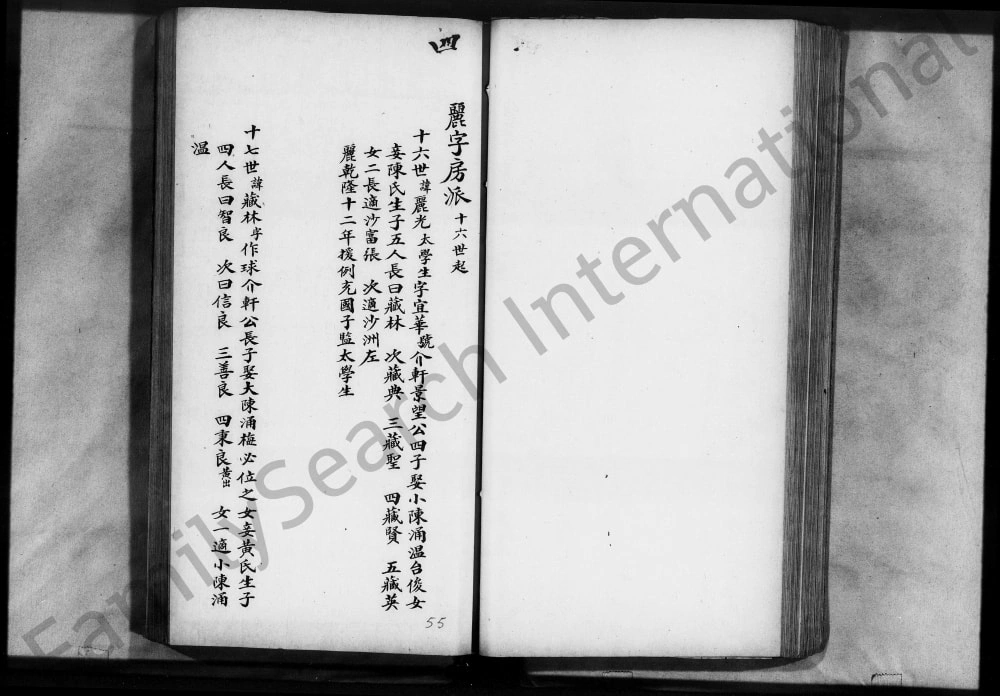 四
麗字房派 十六世起
十六世諱麗光太學生字宜華號介軒景望公四子娶小陳涌温台俊女
妾陳氏生子五人長曰藏林 次藏典 三藏聖 四藏賢 五藏英
女二長適沙富張 次適沙洲左
麗乾隆十二年援例充國子監太學生
十七世諱藏林字作球介軒公長子娶大陳涌梅必位之女妾黃氏生子
四人長曰智良 次曰信良 三善良 四秉良黃出 女一適小陳涌
温
55
FamilySearch International